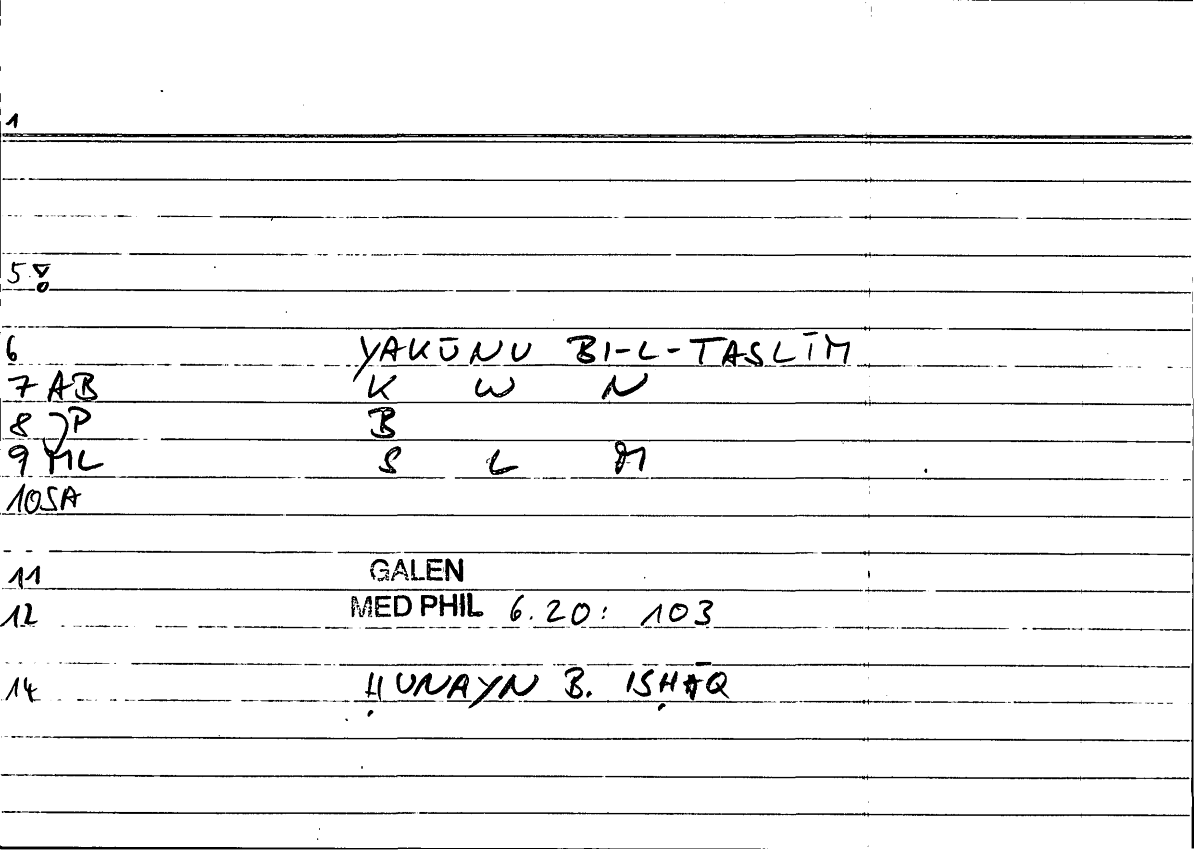 1
5
6 YAKŪNU BI-L-TASLĪM
7 AB K W N
8 P B
9 ML S L M
10 SA
11 GALEN
12 MED PHIL 6.20: 103
14 ḤUNAYN B. ISḤĀQ